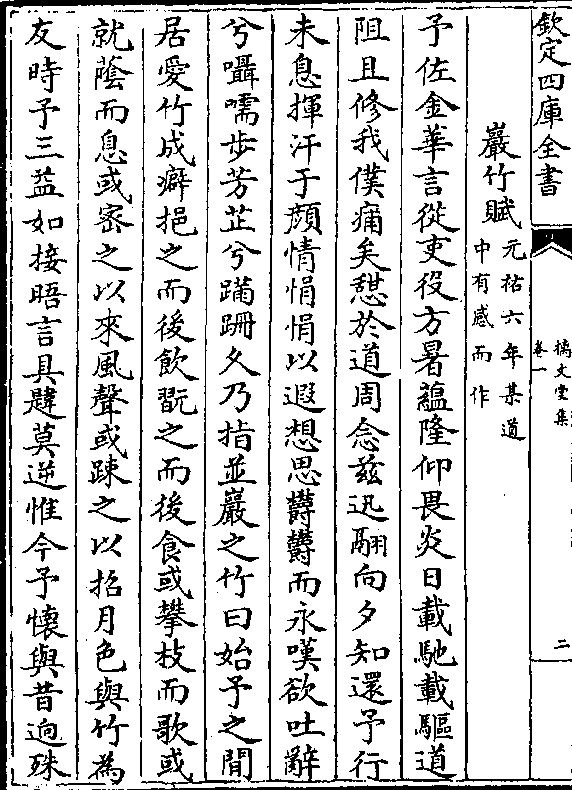 欽定四庫全書
摛文堂集
卷一
二
巖竹賦
元祐六年某道
中有感而作
予佐金華言從吏役方暑蘊隆仰畏炎日載馳載驅道
阻且修我僕痡矣憇於道周念兹迅翮向夕知還予行
未息揮汗于顔情悁悁以遐想思鬱鬱而永嘆欲吐辭
兮囁嚅步芳芷兮蹒跚久乃指並巖之竹曰始予之閒
居愛竹成癖挹之而後飲翫之而後食或攀枝而歌或
就蔭而息或宻之以來風聲或踈之以招月色與竹為
友時予三益如接晤言具韙莫逆惟今予懷與昔逈殊